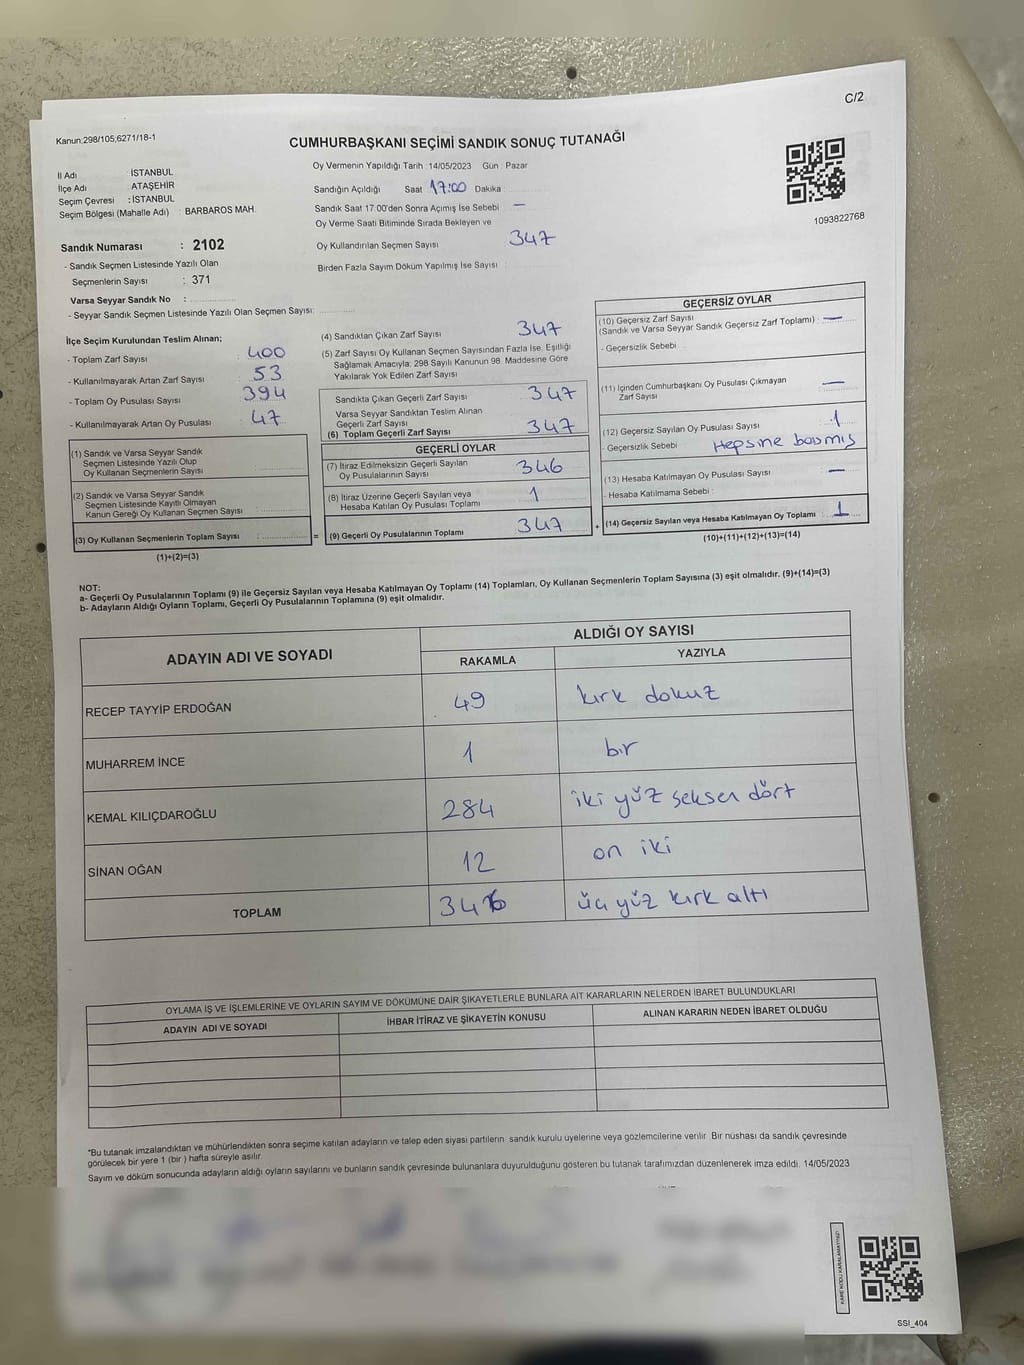 C/2
Kanun:298/105;6271/18-1
CUMHURBAŞKANI SEÇİMİ SANDIK SONUÇ TUTANAĞI
İl Adı İSTANBUL
İlçe Adı ATAŞEHİR
Seçim Çevresi : İSTANBUL
Seçim Bölgesi (Mahalle Adı) : BARBAROS MAH.
Sandık Numarası : 2102
- Sandık Seçmen Listesinde Yazılı Olan
Seçmenlerin Sayısı : 371
Varsa Seyyar Sandık No :
- Seyyar Sandık Seçmen Listesinde Yazılı Olan Seçmen Sayısı:
Oy Vermenin Yapıldığı Tarih : 14/05/2023 Gün : Pazar
Sandığın Açıldığı Saat 17:00 Dakika :
Sandık Saat 17:00'den Sonra Açımış İse Sebebi —
Oy Verme Saati Bitiminde Sırada Bekleyen ve
Oy Kullandırılan Seçmen Sayısı 347
Birden Fazla Sayım Döküm Yapılmış İse Sayısı :
1093822768
İlçe Seçim Kurulundan Teslim Alınan;
- Toplam Zarf Sayısı : 400
- Kullanılmayarak Artan Zarf Sayısı : 53
- Toplam Oy Pusulası Sayısı : 394
- Kullanılmayarak Artan Oy Pusulası : 47
(1) Sandık ve Varsa Seyyar Sandık
Seçmen Listesinde Yazılı Olup
Oy Kullanan Seçmenlerin Sayısı :
(2) Sandık ve Varsa Seyyar Sandık
Seçmen Listesinde Kayıtlı Olmayan
Kanun Gereği Oy Kullanan Seçmen Sayısı :
(3) Oy Kullanan Seçmenlerin Toplam Sayısı :
(1)+(2)=(3)
(4) Sandıktan Çıkan Zarf Sayısı 347
(5) Zarf Sayısı Oy Kullanan Seçmen Sayısından Fazla İse, Eşitliği
Sağlamak Amacıyla; 298 Sayılı Kanunun 98. Maddesine Göre
Yakılarak Yok Edilen Zarf Sayısı
Sandıkta Çıkan Geçerli Zarf Sayısı 347
Varsa Seyyar Sandıktan Teslim Alınan
Geçerli Zarf Sayısı
(6) Toplam Geçerli Zarf Sayısı 347
GEÇERLİ OYLAR
(7) İtiraz Edilmeksizin Geçerli Sayılan
Oy Pusulalarının Sayısı : 346
(8) İtiraz Üzerine Geçerli Sayılan veya
Hesaba Katılan Oy Pusulası Toplamı : 1
= (9) Geçerli Oy Pusulalarının Toplamı 347 +
GEÇERSİZ OYLAR
(10) Geçersiz Zarf Sayısı
(Sandık ve Varsa Seyyar Sandık Geçersiz Zarf Toplamı) : —
- Geçersizlik Sebebi :
(11) İçinden Cumhurbaşkanı Oy Pusulası Çıkmayan
Zarf Sayısı —
(12) Geçersiz Sayılan Oy Pusulası Sayısı : 1
- Geçersizlik Sebebi : Hepsine basmış
(13) Hesaba Katılmayan Oy Pusulası Sayısı : —
- Hesaba Katılmama Sebebi :
(14) Geçersiz Sayılan veya Hesaba Katılmayan Oy Toplamı : 1
(10)+(11)+(12)+(13)=(14)
NOT:
a- Geçerli Oy Pusulalarının Toplamı (9) ile Geçersiz Sayılan veya Hesaba Katılmayan Oy Toplamı (14) Toplamları, Oy Kullanan Seçmenlerin Toplam Sayısına (3) eşit olmalıdır. (9)+(14)=(3)
b- Adayların Aldığı Oyların Toplamı, Geçerli Oy Pusulalarının Toplamına (9) eşit olmalıdır.
ADAYIN ADI VE SOYADI ALDIĞI OY SAYISI
RAKAMLA YAZIYLA
RECEP TAYYİP ERDOĞAN 49 kırk dokuz
MUHARREM İNCE 1 bir
KEMAL KILIÇDAROĞLU 284 iki yüz seksen dört
SİNAN OĞAN 12 on iki
TOPLAM 346 üç yüz kırk altı
OYLAMA İŞ VE İŞLEMLERİNE VE OYLARIN SAYIM VE DÖKÜMÜNE DAİR ŞİKAYETLERLE BUNLARA AİT KARARLARIN NELERDEN İBARET BULUNDUKLARI
ADAYIN ADI VE SOYADI İHBAR İTİRAZ VE ŞİKAYETİN KONUSU ALINAN KARARIN NEDEN İBARET OLDUĞU
*Bu tutanak imzalandıktan ve mühürlendikten sonra seçime katılan adayların ve talep eden siyasi partilerin sandık kurulu üyelerine veya gözlemcilerine verilir. Bir nüshası da sandık çevresinde
görülecek bir yere 1 (bir ) hafta süreyle asılır.
Sayım ve döküm sonucunda adayların aldığı oyların sayılarını ve bunların sandık çevresinde bulunanlara duyurulduğunu gösteren bu tutanak tarafımızdan düzenlenerek imza edildi. 14/05/2023
KARE KODU KARALAMAYINIZ!
SSI_404